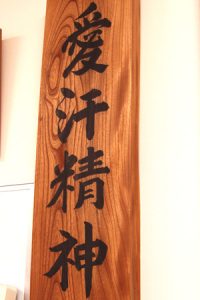 愛汗精神